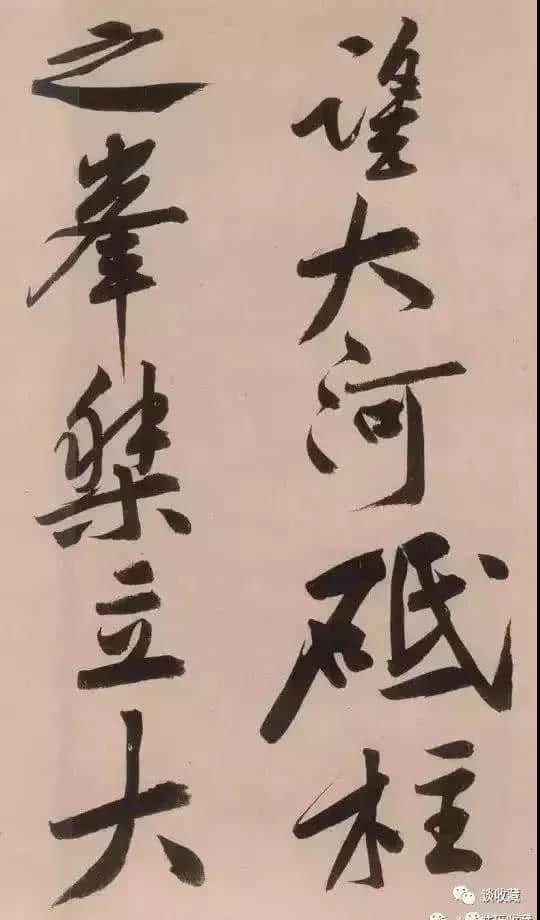 望大河砥柱
之峯桀立大
谈收藏